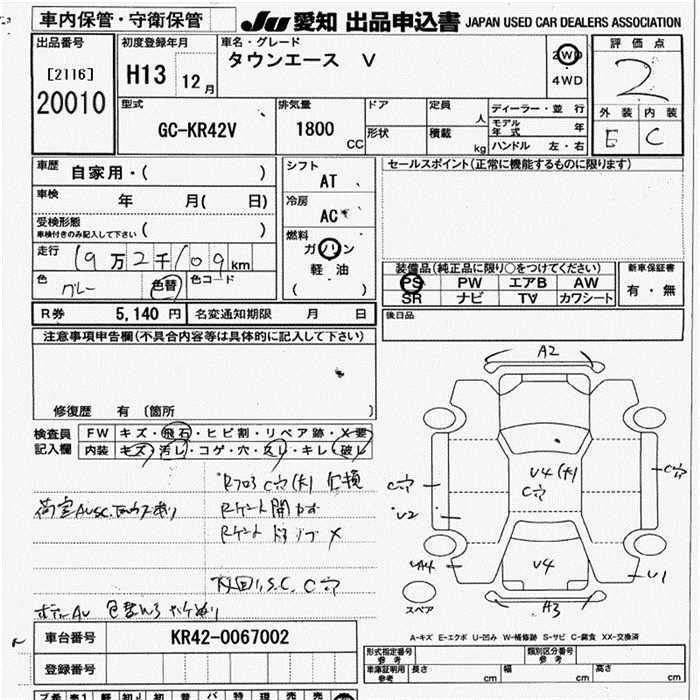 車内保管・守衛保管
JU 愛知 出品申込書 JAPAN USED CAR DEALERS ASSOCIATION
出品番号
[2116]
20010
初度登録年月
H13 12月
車名・グレード
タウンエース V
2WD
4WD
評価点
2
外装 内装
E C
型式
GC-KR42V
排気量
1800 CC
ドア
形状
定員 人
積載 kg
ディーラー・並行
モデル年式 年
ハンドル 左・右
車歴 自家用・( )
車検 年 月( 日)
受検形態
車検付きのみ記入して下さい ( )
走行 19万2千109km
色 グレー 色替 色コード
シフト
AT
冷房
AC
燃料
ガソリン
軽油
( )
セールスポイント(正常に機能するものに限ります)
装備品(純正品に限り○をつけてください)
PS PW エアB AW
SR ナビ TV カワシート
新車保証書
有・無
R券 5,140円 名変通知期限 月 日
後日品
注意事項申告欄(不具合内容等は具体的に記入して下さい)
修復歴 有 〔箇所 〕
検査員記入欄
FW キズ・飛石・ヒビ割・リペア跡・X要
内装 キズ・汚レ・コゲ・穴・スレ・キレ・破レ
A2
C穴
U2
U4
C穴
C穴
UA4
U4
U1
A3
スペア
A-キズ E-エクボ U-凹み W-補修跡 S-サビ C-腐食 XX-交換済
車台番号 KR42-0067002
登録番号
形式指定番号 参考
類別区分番号 参考
車庫証明用 参考 長さ cm 幅 cm 高さ cm